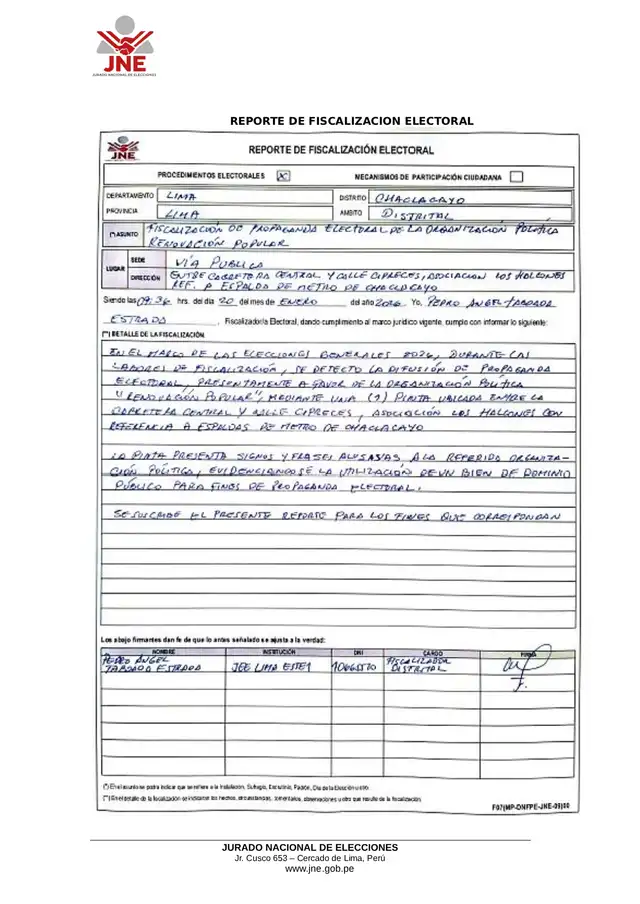 JNE
JURADO NACIONAL DE ELECCIONES
REPORTE DE FISCALIZACION ELECTORAL
JNE
REPORTE DE FISCALIZACIÓN ELECTORAL
PROCEDIMIENTOS ELECTORALES X MECANISMOS DE PARTICIPACIÓN CIUDADANA
DEPARTAMENTO LIMA DISTRITO CHACLACAYO
PROVINCIA LIMA AMBITO DISTRITAL
(*) ASUNTO FISCALIZACIÓN DE PROPAGANDA ELECTORAL DE LA ORGANIZACIÓN POLÍTICA
RENOVACIÓN POPULAR
LUGAR SEDE VÍA PUBLICA
DIRECCIÓN ENTRE CARRETERA CENTRAL Y CALLE CIPRECES, ASOCIACION LOS HALCONES
REF. A ESPALDA DE METRO DE CHACLACAYO
Siendo las 09:36 hrs. del día 20 del mes de ENERO del año 2026. Yo, PEDRO ANGEL TABOADA
ESTRADA, Fiscalizador/a Electoral, dando cumplimiento al marco jurídico vigente, cumplo con informar lo siguiente:
(**) DETALLE DE LA FISCALIZACIÓN.
EN EL MARCO DE LAS ELECCIONES GENERALES 2026, DURANTE LAS
LABORES DE FISCALIZACIÓN, SE DETECTO LA DIFUSIÓN DE PROPAGANDA
ELECTORAL, PRESENTAMENTE A FAVOR DE LA ORGANIZACIÓN POLITICA
"RENOVACIÓN POPULAR", MEDIANTE UNA (1) PINTA UBICADA ENTRE LA
CARRETERA CENTRAL Y CALLE CIPRECES, ASOCIACIÓN LOS HALCONES CON
REFERENCIA A ESPALDAS DE METRO DE CHACLACAYO
LA PINTA PRESENTA SIGNOS Y FRASES ALUSIVAS A LA REFERIDO ORGANIZA-
CIÓN POLÍTICA, EVIDENCIANDOSE LA UTILIZACIÓN DE UN BIEN DE DOMINIO
PÚBLICO PARA FINES DE PROPAGANDA ELECTORAL.
SE SUSCRIBE EL PRESENTE REPORTE PARA LOS FINES QUE CORRESPONDAN
Los abajo firmantes dan fe de que lo antes señalado se ajusta a la verdad:
NOMBRE INSTITUCIÓN DNI CARGO FIRMA
PEDRO ANGEL TABOADA ESTRADA JEE LIMA ESTE 1 FISCALIZADOR DISTRITAL
(*) En el asunto se podrá indicar que se refiere a la Instalación, Sufragio, Escrutinio, Padrón, Día de la Elección u otro.
(**) En el detalle de la fiscalización se indicaran los hechos, circunstancias, comentarios, observaciones u otro que resulte de la fiscalización.
F07(MP-DNFPE-JNE-09)00
JURADO NACIONAL DE ELECCIONES
Jr. Cusco 653 – Cercado de Lima, Perú
www.jne.gob.pe